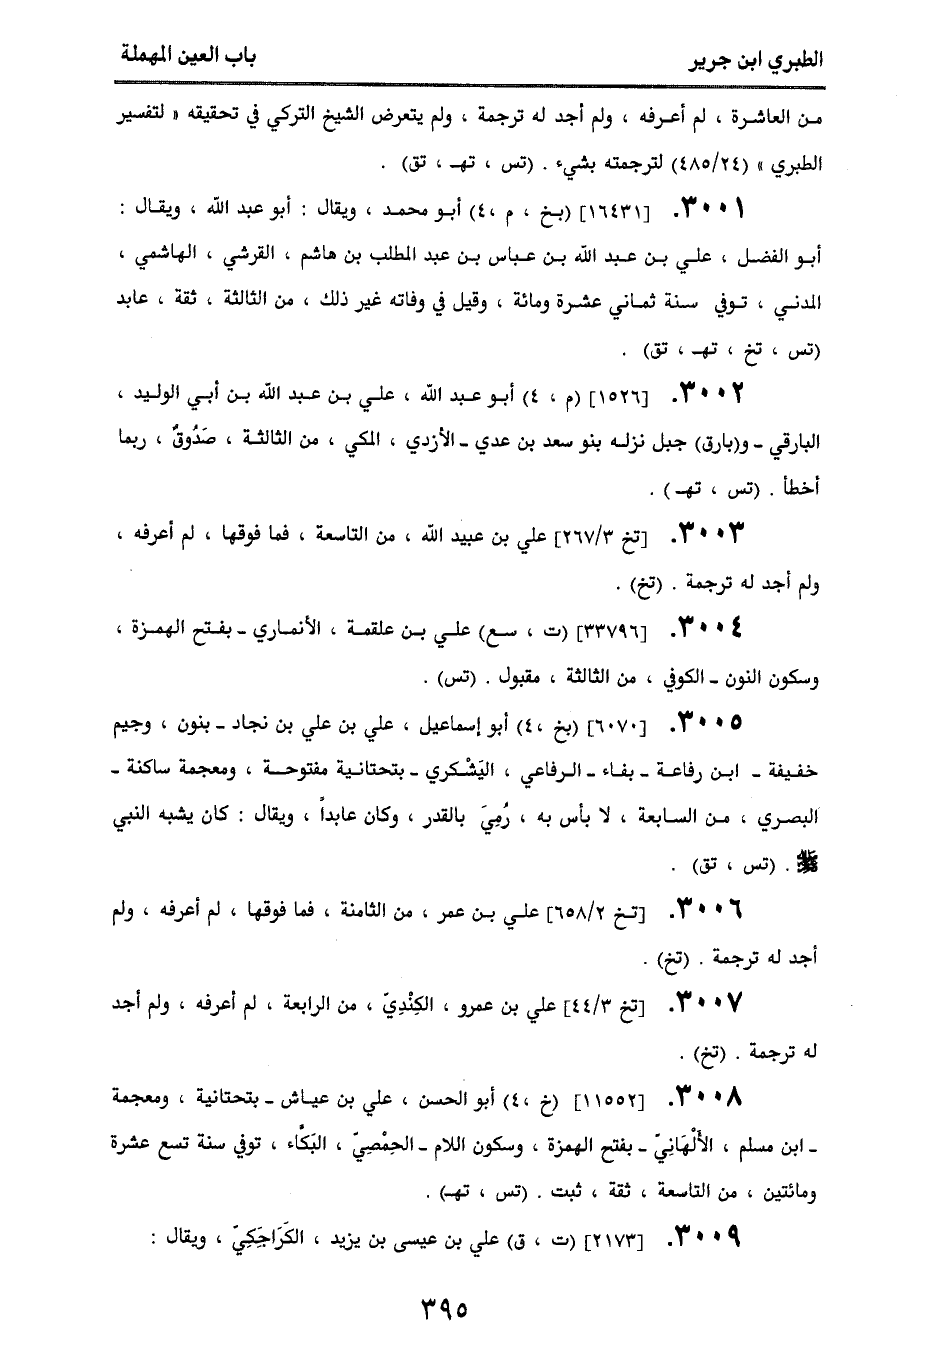 الطبري ابن جرير
باب العين المهملة
من العاشرة ، لم أعرفه ، ولم أجد له ترجمة ، ولم يتعرض الشيخ التركي في تحقيقه « لتفسير
الطبري » (٤٨٥/٢٤) لترجمته بشيء . (تس ، تهـ ، تق) .
٣٠٠١. [١٦٤٣١] (بخ ، م ،٤) أبو محمد ، ويقال : أبو عبد الله ، ويقال :
أبو الفضل ، علي بن عبد الله بن عباس بن عبد المطلب بن هاشم ، القرشي ، الهاشمي ،
المدني ، توفي سنة ثماني عشرة ومائة ، وقيل في وفاته غير ذلك ، من الثالثة ، ثقة ، عابد
(تس ، تخ ، تهـ ، تق) .
٣٠٠٢. [١٥٢٦] (م ، ٤) أبو عبد الله ، علي بن عبد الله بن أبي الوليد ،
البارقي ـ و(بارق) جبل نزله بنو سعد بن عدي ـ الأزدي ، المكي ، من الثالثة ، صَدُوقٌ ، ربما
أخطأ . (تس ، تهـ) .
٣٠٠٣. [تخ ٢٦٧/٣] علي بن عبيد الله ، من التاسعة ، فما فوقها ، لم أعرفه ،
ولم أجد له ترجمة . (تخ) .
٣٠٠٤. [٣٣٧٩٦] (ت ، سع) علي بن علقمة ، الأنماري ـ بفتح الهمزة ،
وسكون النون ـ الكوفي ، من الثالثة ، مقبول . (تس) .
٣٠٠٥. [٦٠٧٠] (بخ ،٤) أبو إسماعيل ، علي بن علي بن نجاد ـ بنون ، وجيم
خفيفة ـ ابن رفاعة ـ بفاء ـ الرفاعي ، اليَشْكري ـ بتحتانية مفتوحة ، ومعجمة ساكنة ـ
البصري ، من السابعة ، لا بأس به ، رُمِيَ بالقدر ، وكان عابداً ، ويقال : كان يشبه النبي
ﷺ . (تس ، تق) .
٣٠٠٦. [تخ ٦٥٨/٢] علي بن عمر ، من الثامنة ، فما فوقها ، لم أعرفه ، ولم
أجد له ترجمة . (تخ) .
٣٠٠٧. [تخ ٤٤/٣] علي بن عمرو ، الكِنْدِيّ ، من الرابعة ، لم أعرفه ، ولم أجد
له ترجمة . (تخ) .
٣٠٠٨. [١١٥٥٢] (خ ،٤) أبو الحسن ، علي بن عياش ـ بتحتانية ، ومعجمة
ـ ابن مسلم ، الأَلْهَانِيّ ـ بفتح الهمزة ، وسكون اللام ـ الحِمْصِيّ ، البَكَّاء ، توفي سنة تسع عشرة
ومائتين ، من التاسعة ، ثقة ، ثبت . (تس ، تهـ) .
٣٠٠٩. [٢١٧٣] (ت ، ق) علي بن عيسى بن يزيد ، الكَرَاجَكِيّ ، ويقال :
٣٩٥